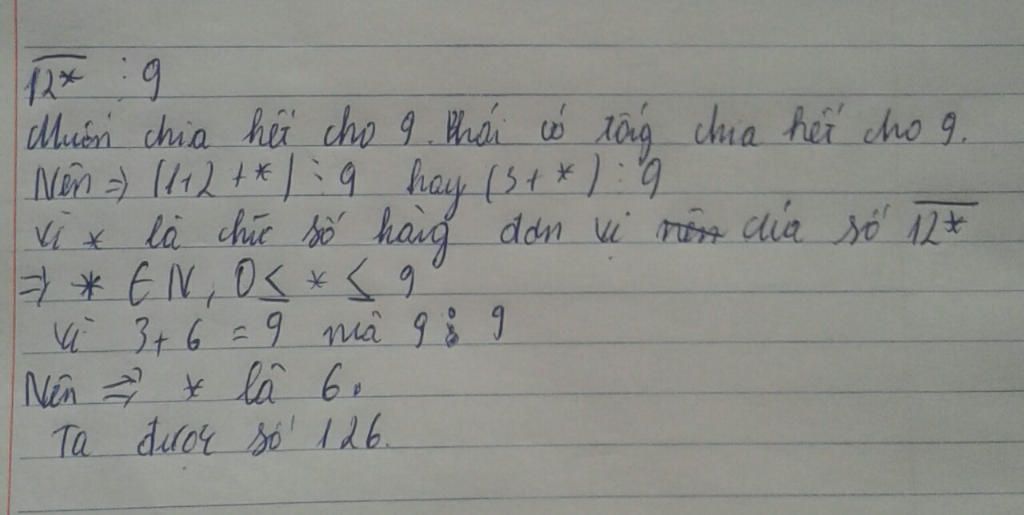 12* ⋮ 9
Muốn chia hết cho 9. Phải có tổng chia hết cho 9.
Nên => (1+2+*) ⋮ 9 hay (3+*) ⋮ 9
Vì * là chữ số hàng đơn vị của số 12*
=> * ∈ N, 0 ≤ * ≤ 9
Vì 3+6 = 9 mà 9 ⋮ 9
Nên => * là 6.
Ta được số 126.